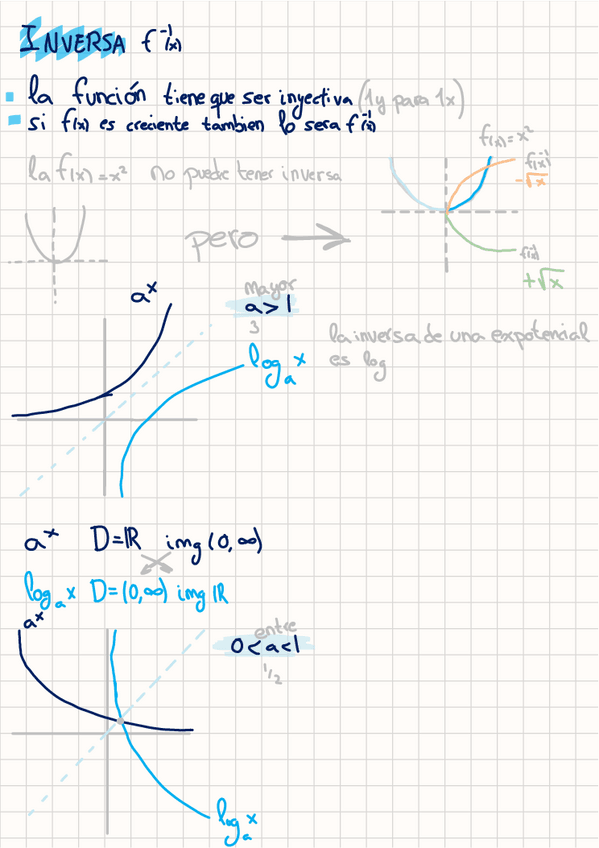 INVERSA f⁻¹(x)
la función tiene que ser inyectiva (1y para 1x)
si f(x) es creciente tambien lo sera f⁻¹(x)
f(x)=x²
f(x)⁻¹
-√x
la f(x)=x² no puede tener inversa
pero
f(x)⁻¹
+√x
aˣ
Mayor
a>1
3
la inversa de una expotencial
es log
logₐx
aˣ D=ℝ img(0,∞)
logₐx D=(0,∞) img ℝ
aˣ
entre
0<a<1
1/2
logₐx